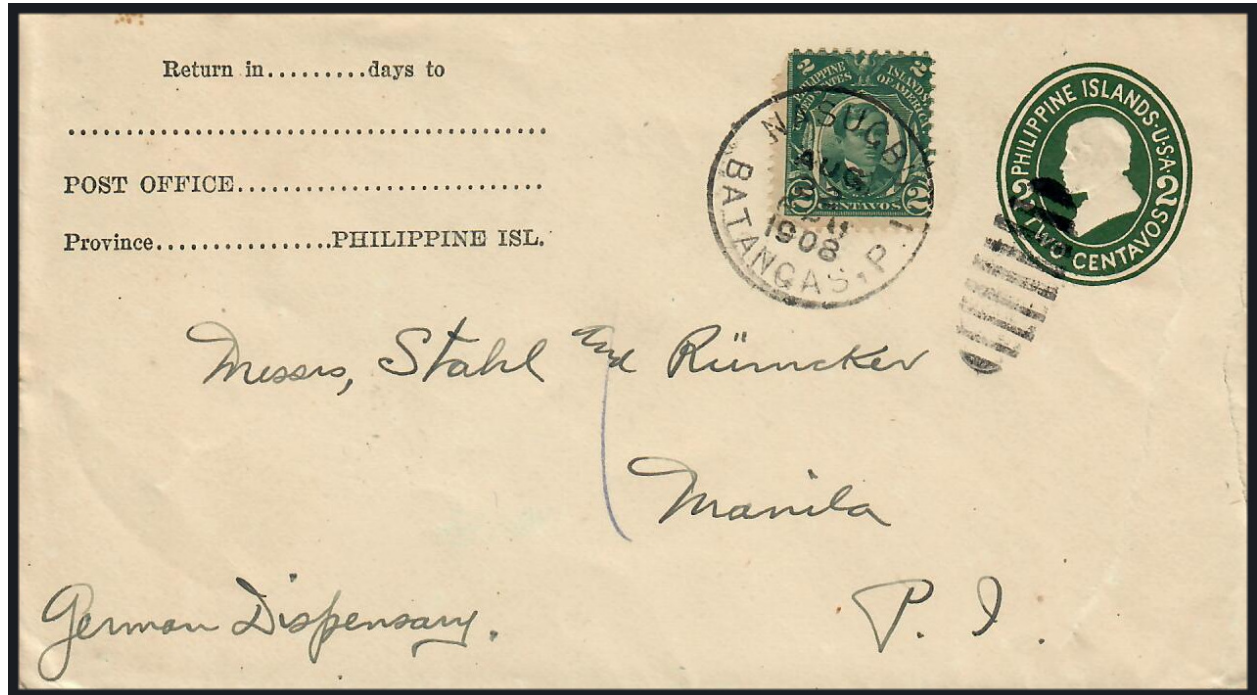 Return in.........days to
POST OFFICE............................
Province................PHILIPPINE ISL.
2 PHILIPPINE ISLANDS 2
UNITED STATES OF AMERICA
2 CENTAVOS 2
NASUGBU
AUG
1908
BATANGAS, P.I.
PHILIPPINE ISLANDS·U·S·A·
2 TWO CENTAVOS 2
Messrs, Stahl and Rümcker
Manila
P. I.
German Dispensary.